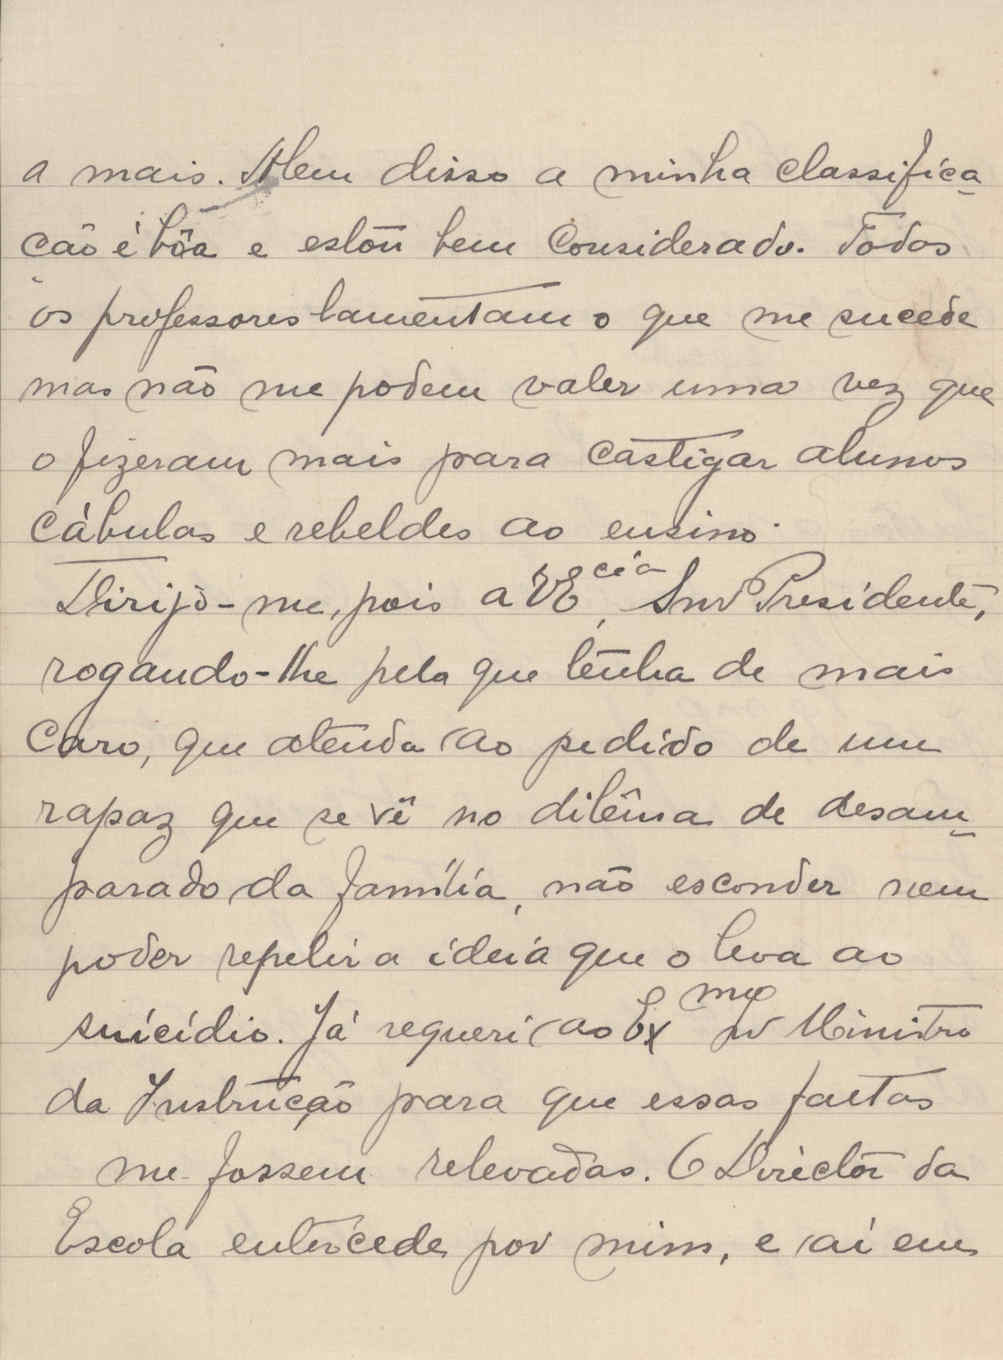 a mais. Alem disso a minha classifica-
cão é bôa e estou bem considerado. Todos
os professores lamentam o que me sucede
mas não me podem valer uma vez que
o fizeram mais para castigar alunos
cábulas e rebeldes ao ensino.
Dirijo-me, pois a V. Ecia, Snr Presidente,
rogando-lhe pelo que tenha de mais
caro, que atenda ao pedido de um
rapaz que se vê no dilêma de desam-
parado da família, não esconder nem
poder repelir a ideia que o leva ao
suicídio. Já requeri ao Exmo Snr Ministro
da Instrução para que essas faltas
me fossem relevadas. O Director da
Escola entercede por mim, e aí em